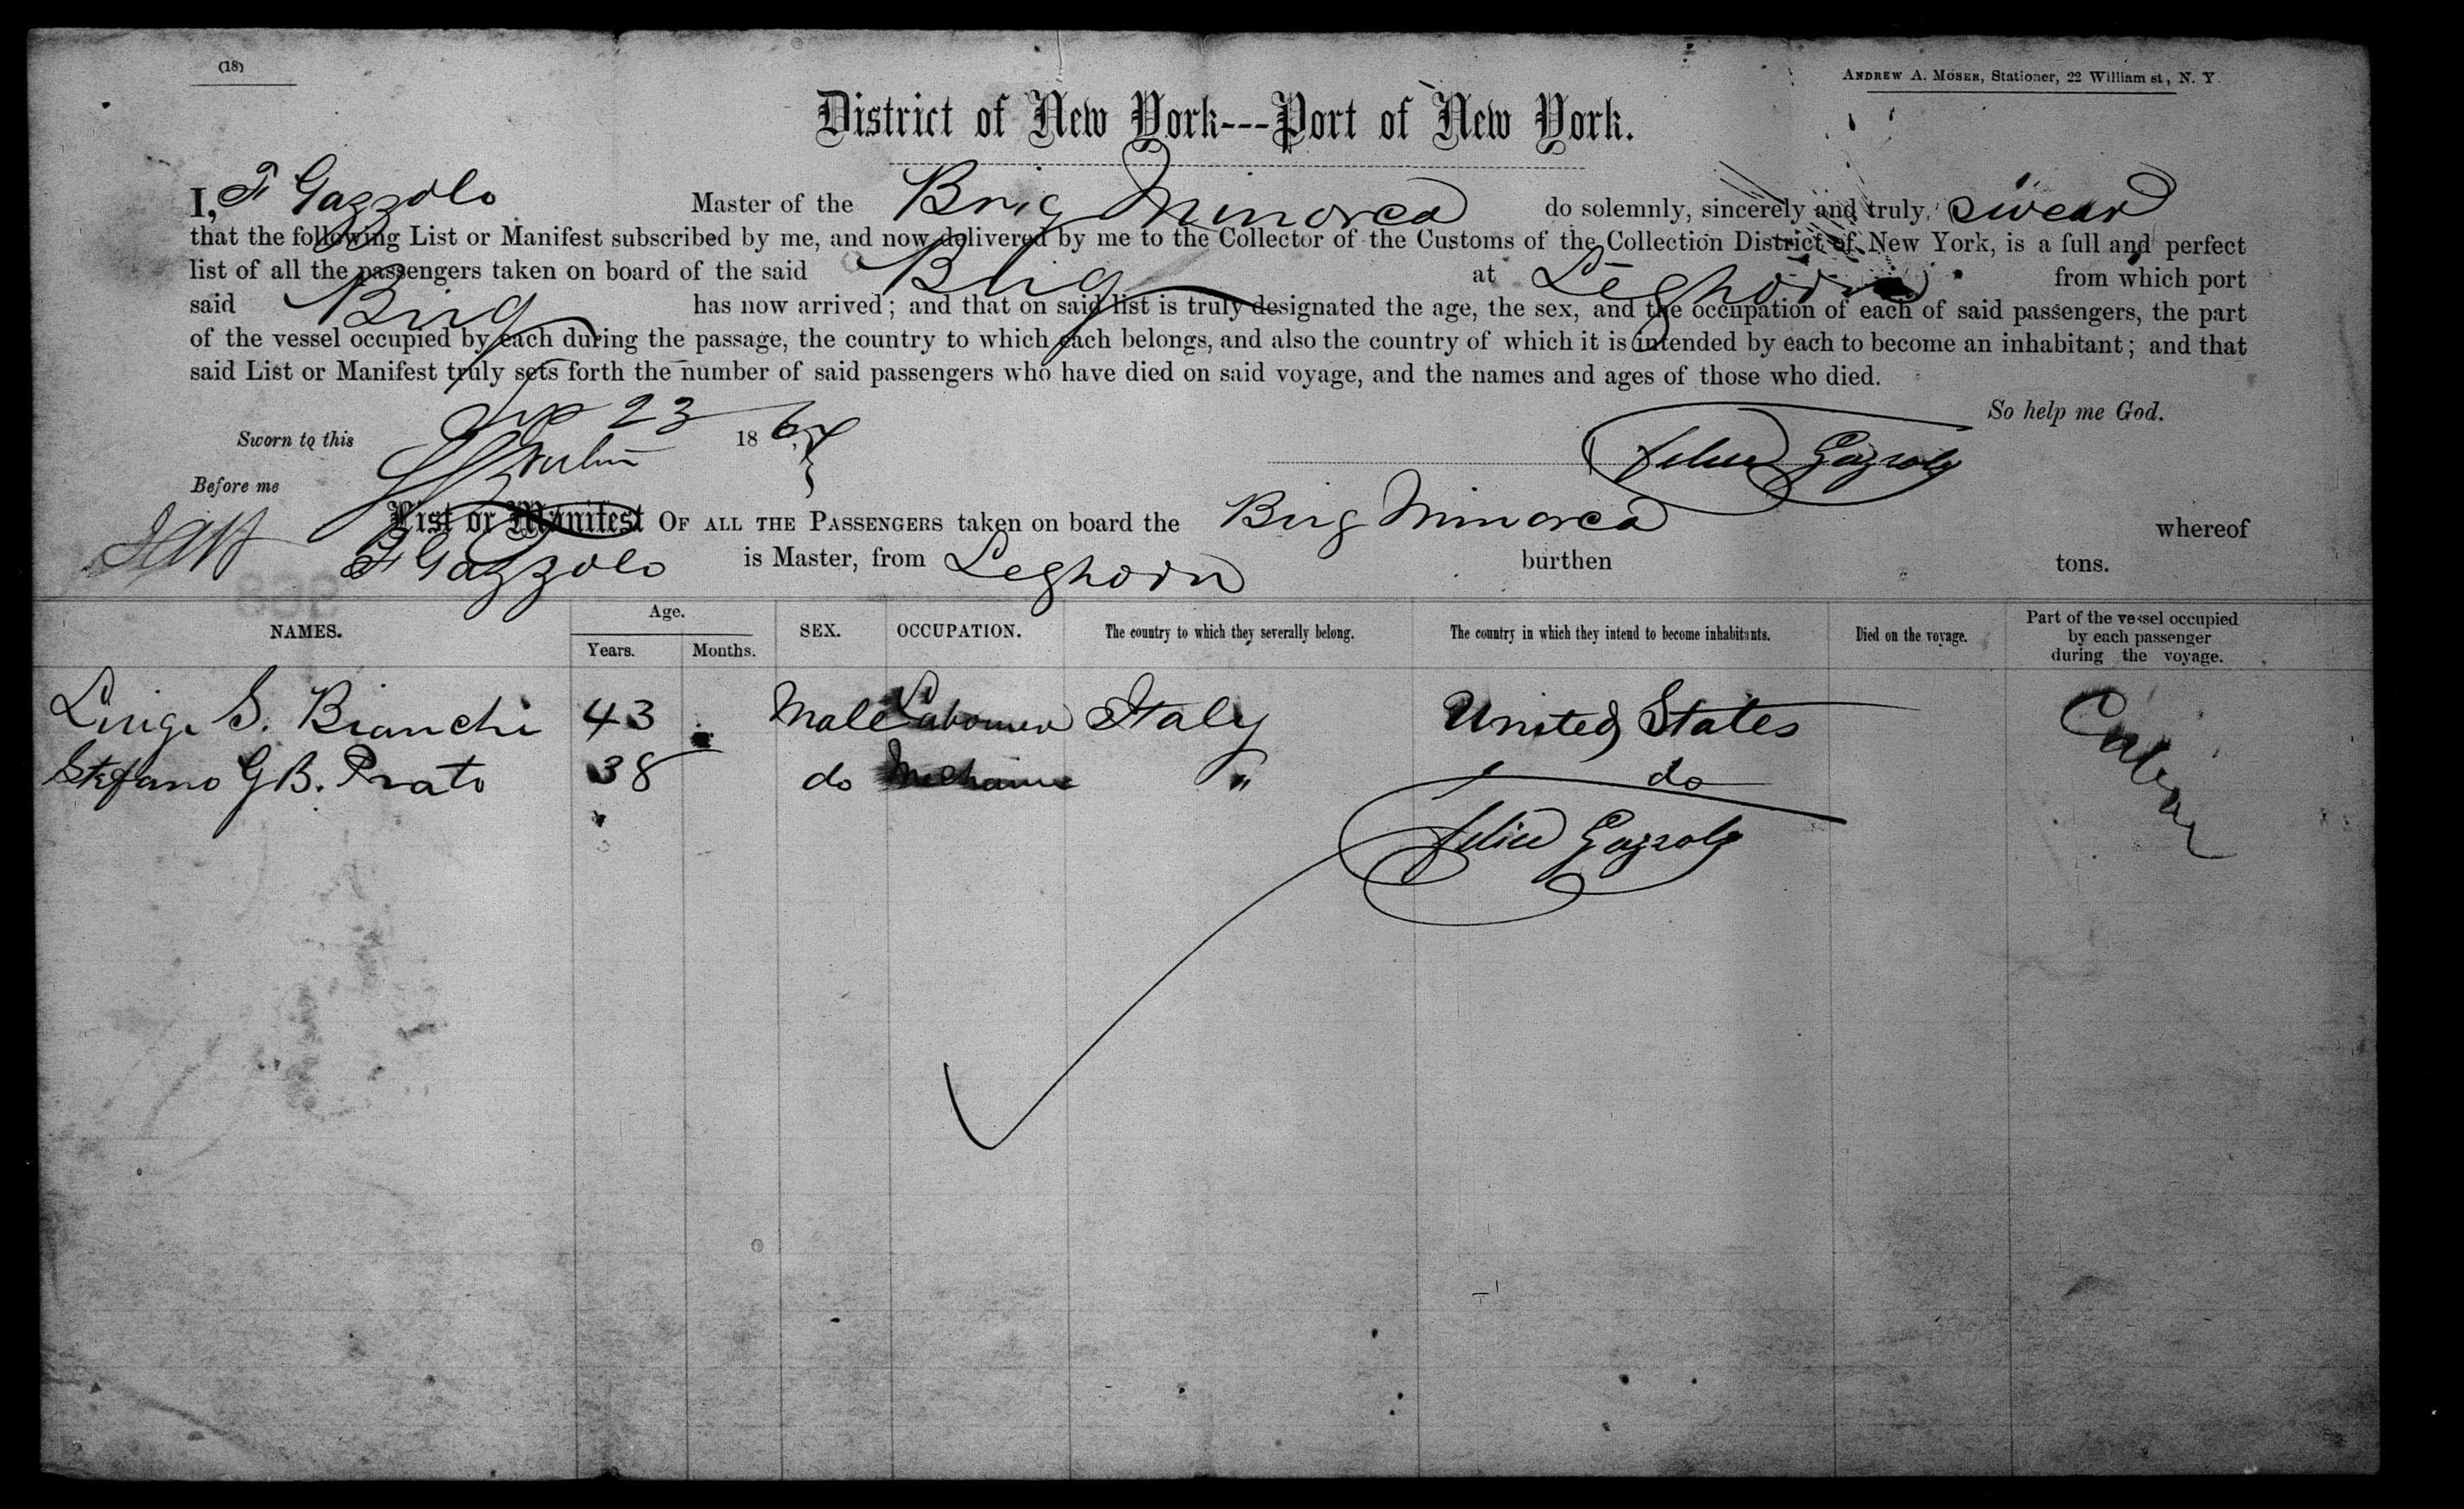 (18)
ANDREW A. MOSER, Stationer, 22 William st, N. Y.
District of New York---Port of New York.
I, F Gazzolo Master of the Brig Minorca do solemnly, sincerely and truly, swear
that the following List or Manifest subscribed by me, and now delivered by me to the Collector of the Customs of the Collection District of New York, is a full and perfect
list of all the passengers taken on board of the said Brig at Leghorn from which port
said Brig has now arrived; and that on said list is truly designated the age, the sex, and the occupation of each of said passengers, the part
of the vessel occupied by each during the passage, the country to which each belongs, and also the country of which it is intended by each to become an inhabitant; and that
said List or Manifest truly sets forth the number of said passengers who have died on said voyage, and the names and ages of those who died.
So help me God.
Sworn to this 23 1864
Felice Gazzolo
Before me
List or Manifest OF ALL THE PASSENGERS taken on board the Brig Minorca whereof
F Gazzolo is Master, from Leghorn burthen tons.
NAMES. Age. Years. Months. SEX. OCCUPATION. The country to which they severally belong. The country in which they intend to become inhabitants. Died on the voyage. Part of the vessel occupied by each passenger during the voyage.
Luigi S. Bianchi 43 Male Labourer Italy United States Cabin
Stefano G B. Prato 38 do Mechanic " do
Felice Gazzolo